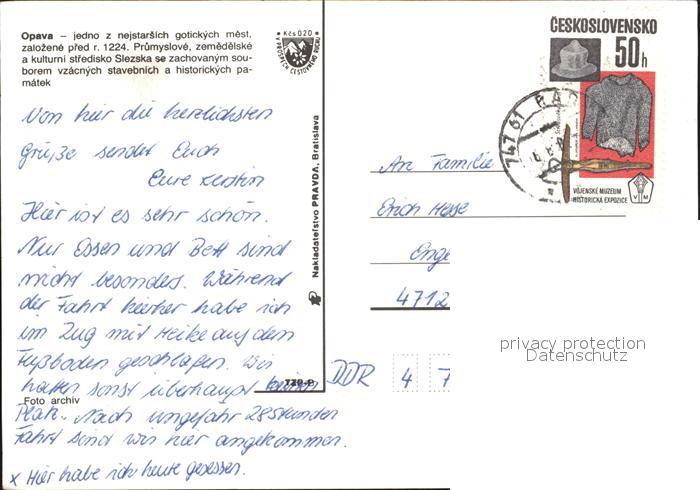 Opava – jedno z nejstarších gotických měst,
založené před r. 1224. Průmyslové, zemědělské
a kulturní středisko Slezska se zachovaným sou-
borem vzácných stavebních a historických pa-
mátek
Kčs 0,20
Von hier die herzlichsten
Grüße sendet Euch
Eure Kerstin
Hier ist es sehr schön.
Nur Essen und Bett sind
nicht besonders. Während
der Fahrt hierher habe ich
im Zug mit Heike auf dem
Fußboden geschlafen. Wir
hatten sonst überhaupt keinen
Platz. Nach ungefähr 28 Stunden
Fahrt sind wir hier angekommen.
x Hier habe ich heute gesessen.
Foto archiv
Nakladatelstvo PRAVDA, Bratislava
ČESKOSLOVENSKO
50h
VOJENSKÉ MUZEUM
HISTORICKÁ EXPOZICE
VM
747 61
An Familie
Erich Hesse
Enge
4712
DDR 4 7
privacy protection
Datenschutz